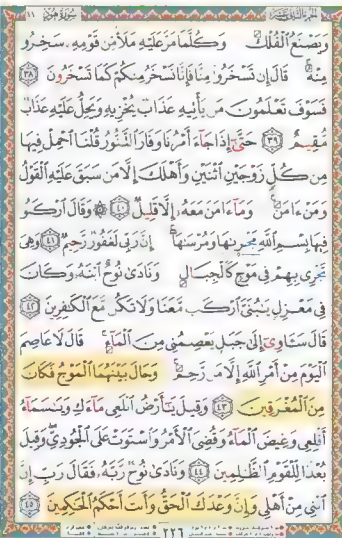 الجزء الثاني عشر سورة هود ١١
وَيَصْنَعُ الْفُلْكَ وَكُلَّمَا مَرَّ عَلَيْهِ مَلَأٌ مِّن قَوْمِهِ سَخِرُوا
مِنْهُ قَالَ إِن تَسْخَرُوا مِنَّا فَإِنَّا نَسْخَرُ مِنكُمْ كَمَا تَسْخَرُونَ ٣٨
فَسَوْفَ تَعْلَمُونَ مَن يَأْتِيهِ عَذَابٌ يُخْزِيهِ وَيَحِلُّ عَلَيْهِ عَذَابٌ
مُّقِيمٌ ٣٩ حَتَّىٰ إِذَا جَاءَ أَمْرُنَا وَفَارَ التَّنُّورُ قُلْنَا احْمِلْ فِيهَا
مِن كُلٍّ زَوْجَيْنِ اثْنَيْنِ وَأَهْلَكَ إِلَّا مَن سَبَقَ عَلَيْهِ الْقَوْلُ
وَمَنْ ءَامَنَ وَمَا ءَامَنَ مَعَهُ إِلَّا قَلِيلٌ ٤٠ ۞ وَقَالَ ارْكَبُوا
فِيهَا بِسْمِ اللَّهِ مَجْرٜىٰهَا وَمُرْسَىٰهَا إِنَّ رَبِّي لَغَفُورٌ رَّحِيمٌ ٤١ وَهِيَ
تَجْرِي بِهِمْ فِي مَوْجٍ كَالْجِبَالِ وَنَادَىٰ نُوحٌ ابْنَهُ وَكَانَ
فِي مَعْزِلٍ يَٰبُنَيَّ ارْكَب مَّعَنَا وَلَا تَكُن مَّعَ الْكَٰفِرِينَ ٤٢
قَالَ سَـَٔاوِي إِلَىٰ جَبَلٍ يَعْصِمُنِي مِنَ الْمَاءِ قَالَ لَا عَاصِمَ
الْيَوْمَ مِنْ أَمْرِ اللَّهِ إِلَّا مَن رَّحِمَ وَحَالَ بَيْنَهُمَا الْمَوْجُ فَكَانَ
مِنَ الْمُغْرَقِينَ ٤٣ وَقِيلَ يَٰأَرْضُ ابْلَعِي مَاءَكِ وَيَٰسَمَاءُ
أَقْلِعِي وَغِيضَ الْمَاءُ وَقُضِيَ الْأَمْرُ وَاسْتَوَتْ عَلَى الْجُودِيِّ وَقِيلَ
بُعْدًا لِّلْقَوْمِ الظَّٰلِمِينَ ٤٤ وَنَادَىٰ نُوحٌ رَّبَّهُ فَقَالَ رَبِّ إِنَّ
ابْنِي مِنْ أَهْلِي وَإِنَّ وَعْدَكَ الْحَقُّ وَأَنتَ أَحْكَمُ الْحَٰكِمِينَ ٤٥
٢٢٦